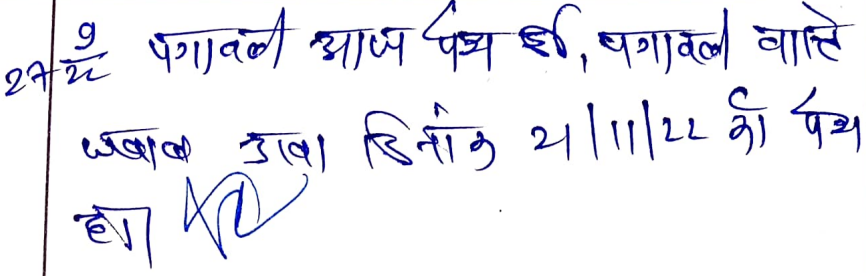 27 9/22 पत्रावली आज पेश हुई, पत्रावली वास्ते
जवाब दावा दिनांक 21/11/22 को पेश
हो।